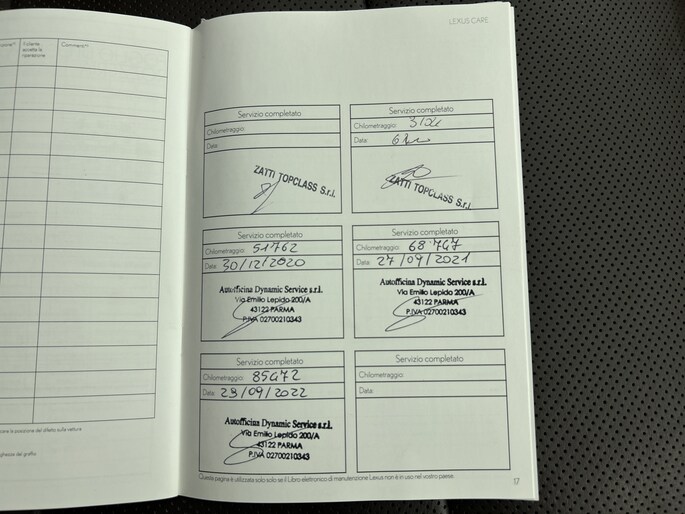 LEXUS CARE
Fatta la
accetta la
riparazione
Commenti
Servizio completato
Chilometraggio:
Data:
ZATTI TOPCLASS S.r.l.
Servizio completato
Chilometraggio:
Data:
ZATTI TOPCLASS S.r.l.
Servizio completato
Chilometraggio: 51762
Data: 30/12/2020
Autofficina Dynamic Service s.r.l.
Via Emilio Lepido 200/A
43122 PARMA
P.IVA 02700210343
Servizio completato
Chilometraggio: 68747
Data: 27/09/2021
Autofficina Dynamic Service s.r.l.
Via Emilio Lepido 200/A
43122 PARMA
P.IVA 02700210343
Servizio completato
Chilometraggio: 85472
Data: 23/09/2022
Autofficina Dynamic Service s.r.l.
Via Emilio Lepido 200/A
43122 PARMA
P.IVA 02700210343
Servizio completato
Chilometraggio:
Data:
la posizione del difetto sulla vettura
del graffio
Questa pagina è utilizzata solo se il Libro elettronico di manutenzione Lexus non è in uso nel vostro paese.
17